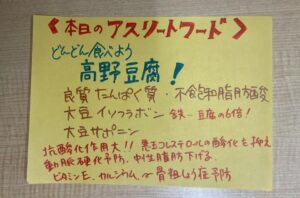 《本日のアスリートフード》
どんどん食べよう
高野豆腐！
良質たんぱく質・不飽和脂肪酸
大豆イソフラボン 鉄…豆腐の6倍！
大豆サポニン
抗酸化作用大！！ 悪玉コレステロールの酸化を抑え
動脈硬化予防、中性脂肪下げる
ビタミンE、カルシウム、→骨粗しょう症予防